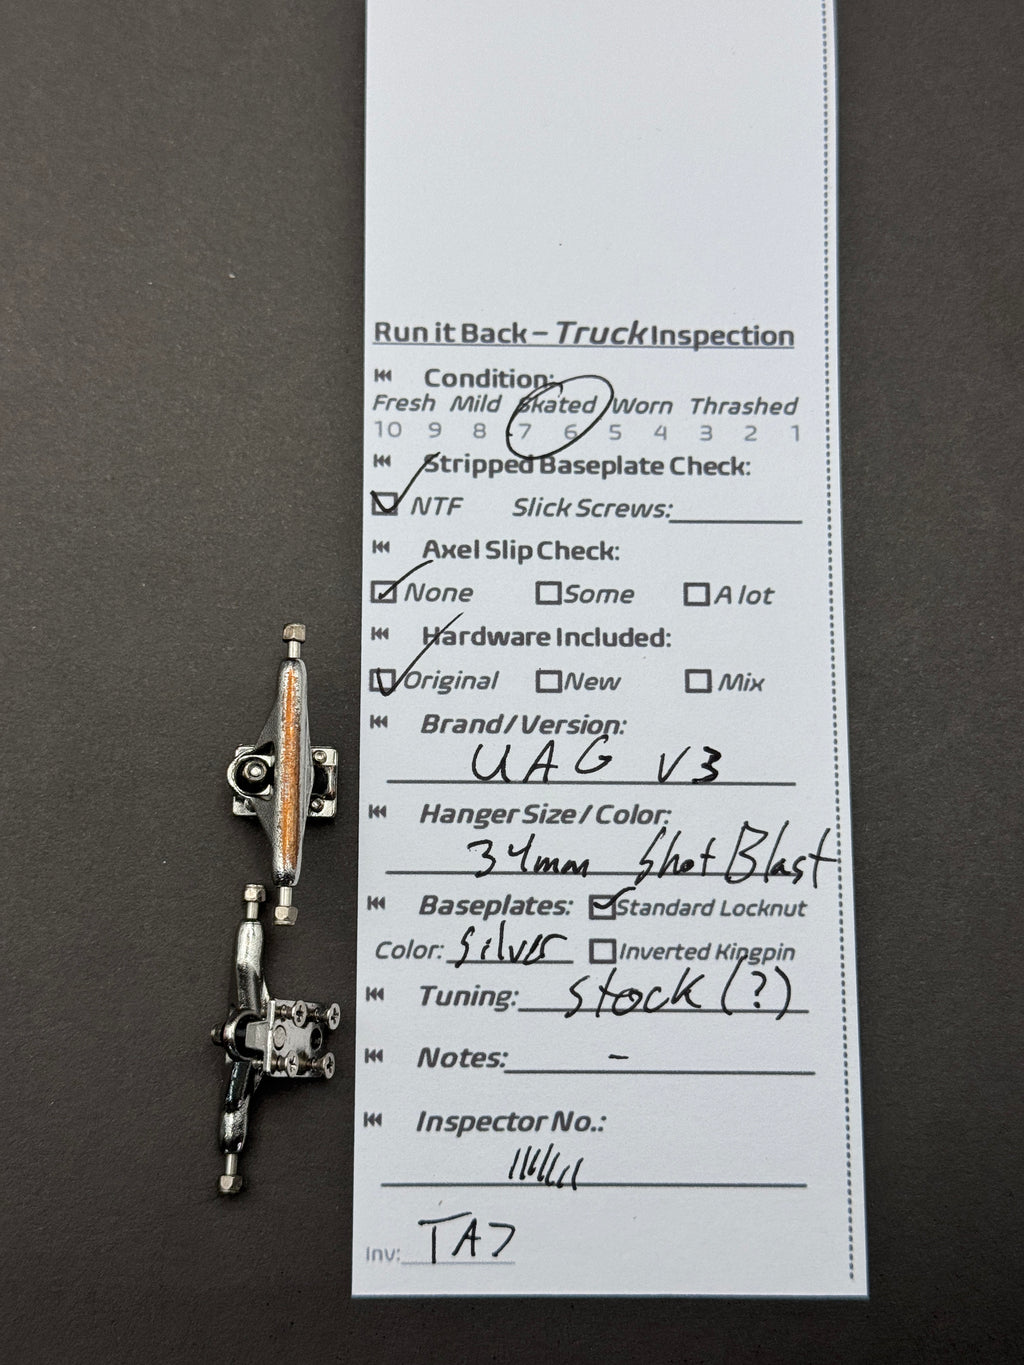 Run it Back – Truck Inspection
Condition:
Fresh Mild Skated Worn Thrashed
10 9 8 7 6 5 4 3 2 1
Stripped Baseplate Check:
NTF Slick Screws:
Axel Slip Check:
None Some A lot
Hardware Included:
Original New Mix
Brand/Version:
UAG V3
Hanger Size/Color:
34mm Shot Blast
Baseplates: Standard Locknut
Color: Silver Inverted Kingpin
Tuning: Stock (?)
Notes: -
Inspector No.:
Inv: TA7